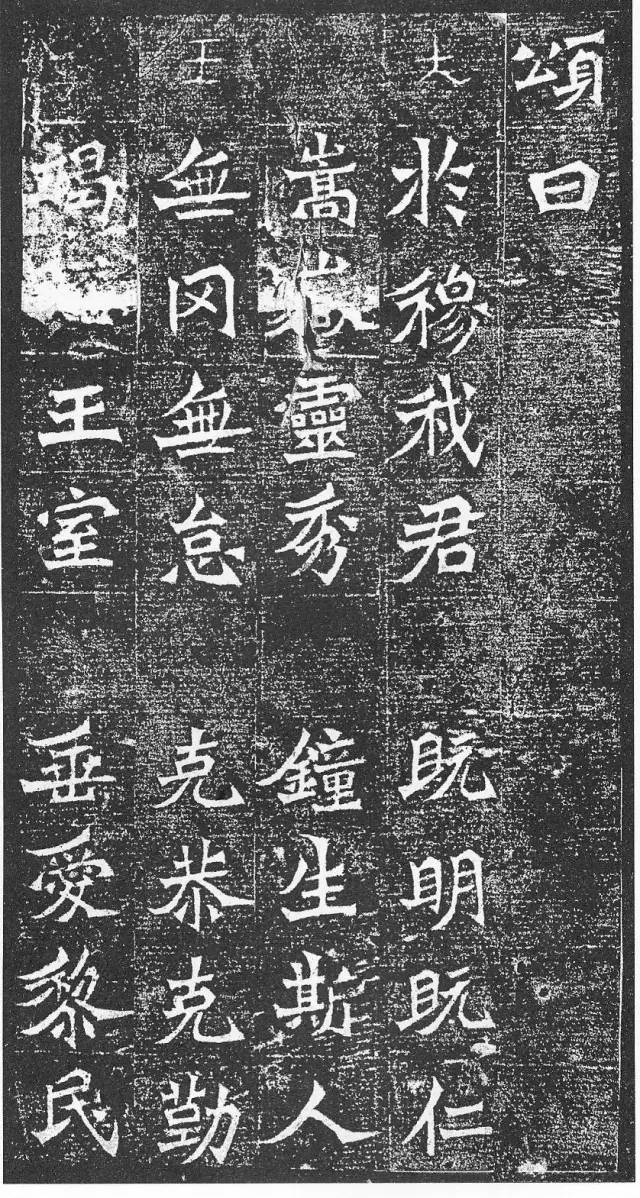 頌曰
大
於穆我君 既明既仁
嵩靈秀 鐘生斯人
王
無冈無怠 克恭克勤
竭王室 垂愛黎民